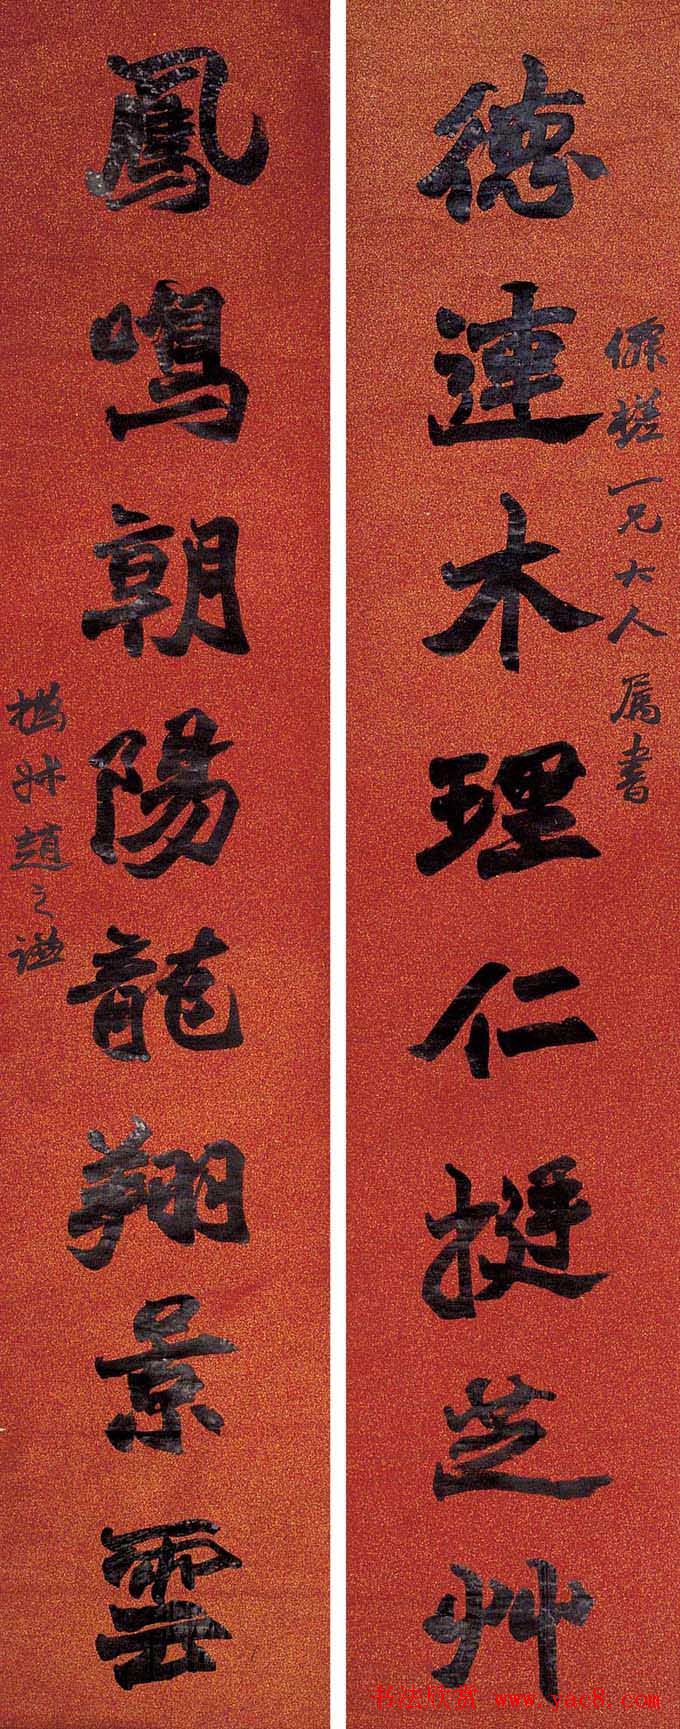 槎一兄大人 属書
德連木理仁挺芝艸
鳳鳴朝陽龍翔景雲
撝叔趙之謙
书法欣赏 www.yac8.com